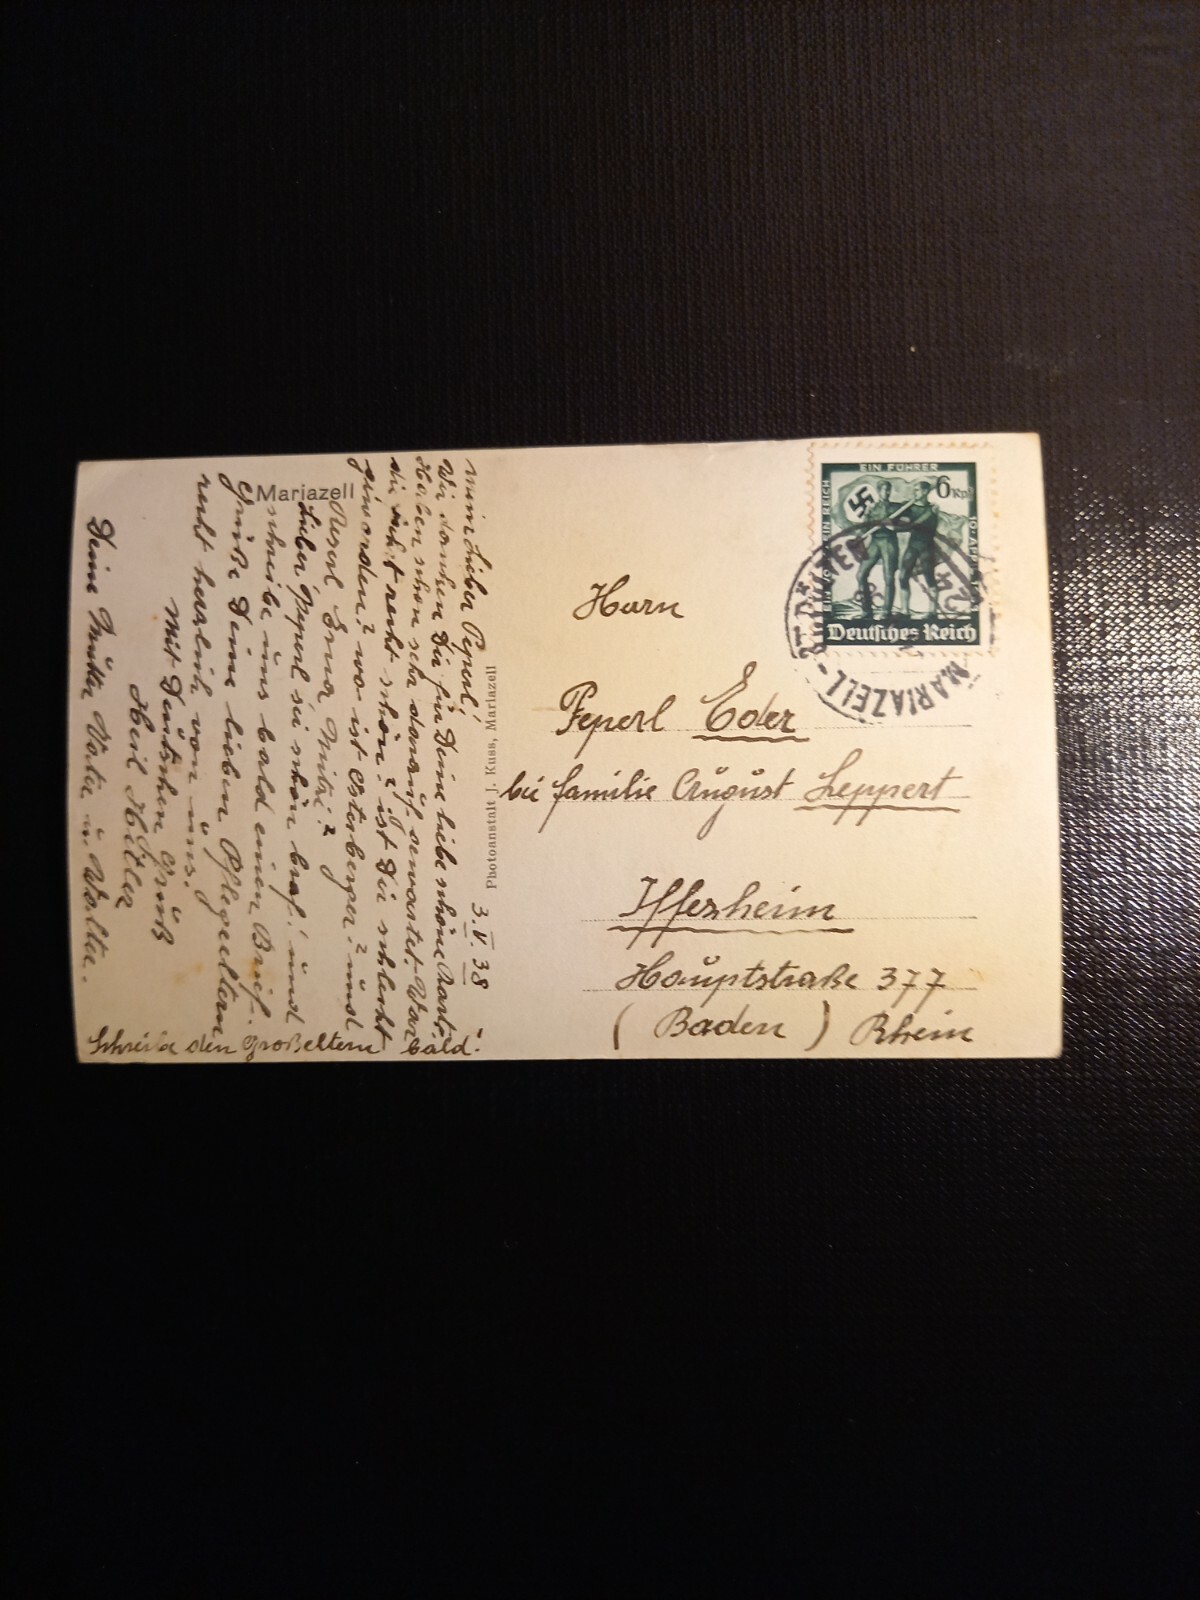 Mariazell
3. V. 38
Mein lieber Peperl!
Wir danken Dir für Deine liebe schöne Karte,
Haben schon sehr darauf gewartet. War
die recht schön? ist Dir schlecht
geworden? wo ist Osterberger? und
Reserl Erna Mitzi?
Lieber Peperl sei schön brav! und
schreibe uns bald einen Brief.
Grüße Deine lieben Pflegeeltern
recht herzlich von uns.
Mit Deutschen Gruß
Heil Hitler
Deine Mutter Vater u. Walter.
Schreibe den Großeltern bald!
Photoanstalt J. Kuss, Mariazell
EIN FÜHRER
EIN REICH
6 Rpf
Deutsches Reich
MARIAZELL - ST. PÖLTEN
Herrn
Peperl Eder
bei Familie August Leppert
Iffezheim
Hauptstraße 377
(Baden) Rhein